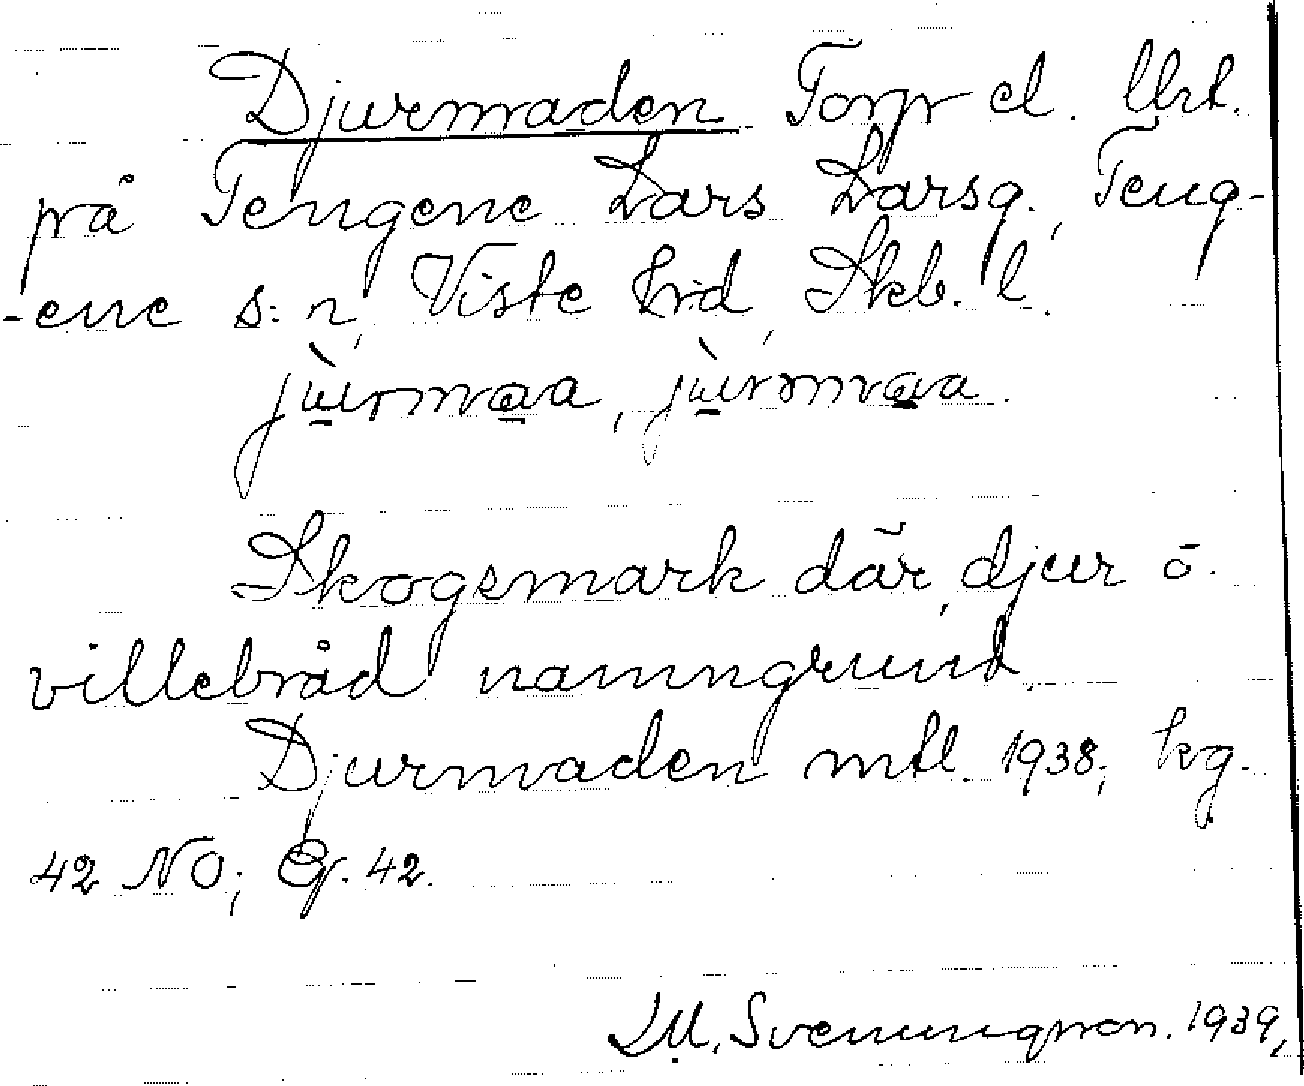 Djurmaden Torp el. lht.
på Tengene Lars Larsg., Teng-
-ene s:n, Viste hrd, Skb. l.
jùrmaa, jùrmmaa.
Skogsmark där, djur o.
villebråd namngrund.
Djurmaden mtl. 1938; kg.
42 NO; 42.
Svenungson. 1939,